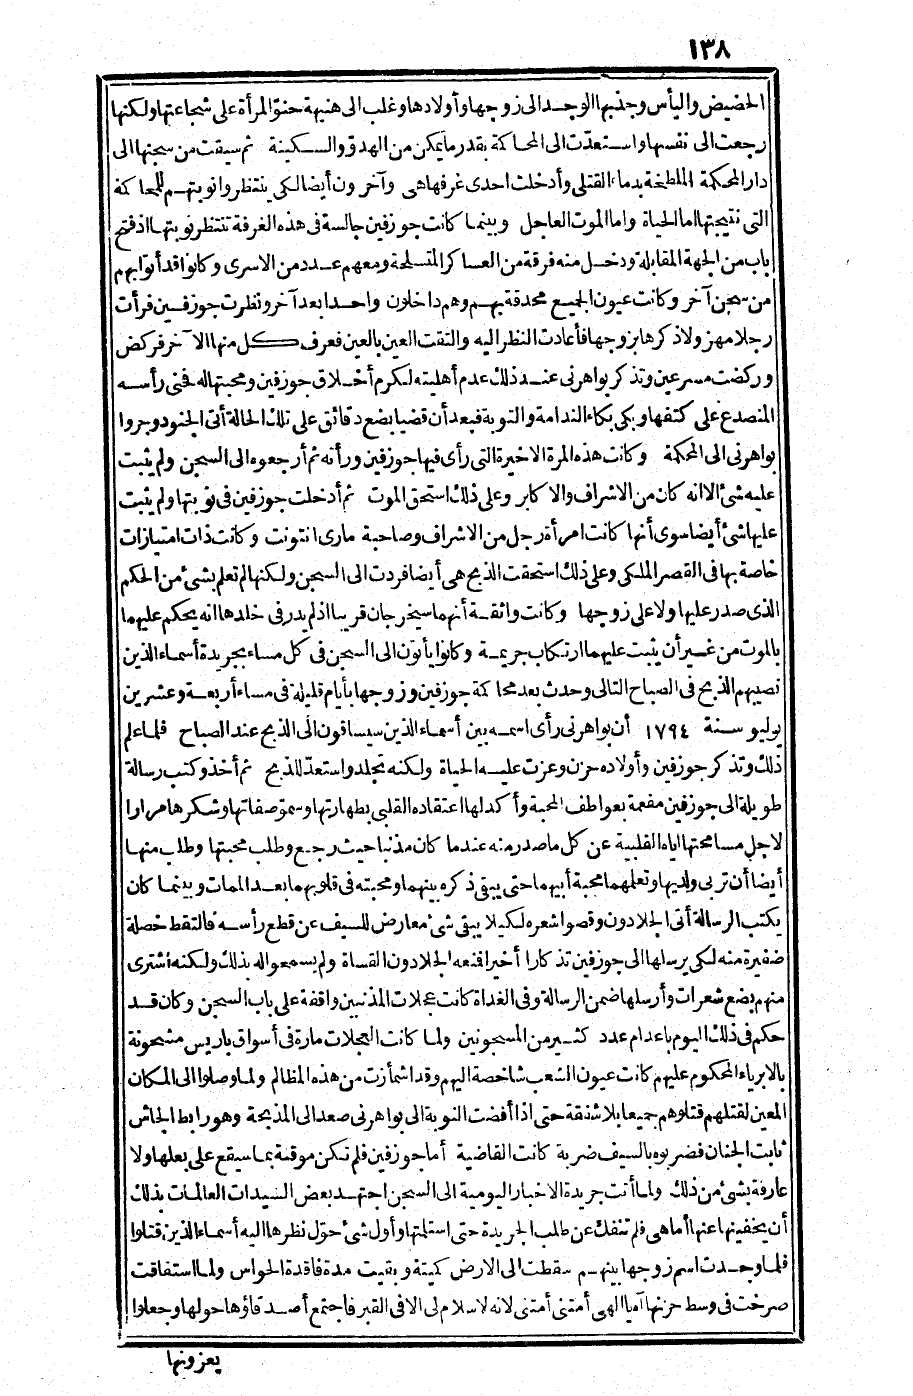 ١٣٨
الحضيض واليأس وجذبها الوجد الى زوجها وأولادها وغلب الى هنيهة حنو المرأة على شجاعتها ولكنها
رجعت الى نفسها واستعدت الى المحاكمة بقدر ما يمكن من الهدو والسكينة ثم سيقت من سجنها الى
دار المحكمة الملطخة بدماء القتلى وأدخلت احدى غرفها هى وآخرون أيضا لكى ينتظروا نوبتهم للمحاكمة
التى نتيجتها اما الحياة واما الموت العاجل وبينما كانت جوزفين جالسة فى هذه الغرفة تنتظر نوبتها اذ فتح
باب من الجهة المقابلة ودخل منه فرقة من العساكر المتسلحة ومعهم عدد من الاسرى وكانوا قد أتوا بهم
من سجن آخر وكانت عيون الجميع محدقة بهم وهم داخلون واحدا بعد آخر ونظرت جوزفين فرأت
رجلا مهزولا ذكرها بزوجها فأعادت النظر اليه والتقت العين بالعين فعرف كل منهما الآخر فركض
وركضت مسرعين وتذكر بواهرنى عند ذلك عدم أهليته لكرم أخلاق جوزفين ومحبتها له فحنى رأسه
المنصدع على كتفها وبكى بكاء الندامة والتوبة فبعد أن قضيا بضع دقائق على تلك الحالة أتى الجنود وجروا
بواهرنى الى المحكمة وكانت هذه المرة الاخيرة التى رأى فيها جوزفين ورأته ثم أرجعوه الى السجن ولم يثبت
عليه شئ الا انه كان من الاشراف والاكابر وعلى ذلك استحق الموت ثم أدخلت جوزفين فى نوبتها ولم يثبت
عليها شئ أيضا سوى أنها كانت امرأة رجل من الاشراف وصاحبة مارى انتونت وكانت ذات امتيازات
خاصة بها فى القصر الملكى وعلى ذلك استحقت الذبح هى أيضا فردت الى السجن ولكنها لم تعلم بشئ من الحكم
الذى صدر عليها ولا على زوجها وكانت واثقة أنهما سيخرجان قريبا اذ لم يدر فى خلدها انه يحكم عليهما
بالموت من غير أن يثبت عليهما ارتكاب جريمة وكانوا يأتون الى السجن فى كل مساء بجريدة أسماء الذين
نصيبهم الذبح فى الصباح التالى وحدث بعد محاكمة جوزفين وزوجها بأيام قليلة فى مساء أربعة وعشرين
يوليو سنة ١٧٩٤ أن بواهرنى رأى اسمه بين أسماء الذين سيساقون الى الذبح عند الصباح فلما علم
ذلك وتذكر جوزفين وأولاده حزن وعزت عليه الحياة ولكنه تجلد واستعد للذبح ثم أخذ وكتب رسالة
طويلة الى جوزفين مفعمة بعواطف المحبة وأكد لها اعتقاده القلبى بطهارتها وسمو صفاتها وشكرها مرارا
لاجل مسامحتها اياه القلبية عن كل ما صدر منه عندما كان مذنبا حيث رجع وطلب محبتها وطلب منها
أيضا أن تربى ولديها وتعلمهما محبة أبيهما حتى يبقى ذكره بينهما ومحبته فى قلوبهما بعد الممات وبينما كان
يكتب الرسالة أتى الجلادون وقصوا شعره لكيلا يبقى شئ معارض للسيف عن قطع رأسه فالتقط خصلة
ضفيرة منه لكى يرسلها الى جوزفين تذكارا أخيرا فنعه الجلادون القساة ولم يسمعوا له بذلك ولكنه اشترى
منهم بضع شعرات وأرسلها ضمن الرسالة وفى الغداة كانت عجلات المذنبين واقفة على باب السجن وكان قد
حكم فى ذلك اليوم باعدام عدد كثير من المسجونين ولما كانت العجلات مارة فى أسواق باريس مشحونة
بالابرياء المحكوم عليهم كانت عيون الشعب شاخصة اليهم وقد اشمأزت من هذه المظالم ولما وصلوا الى المكان
المعين لقتلهم قتلوهم جميعا بلا شفقة حتى اذا أفضت النوبة الى بواهرنى صعد الى المذبحة وهو رابط الجاش
ثابت الجنان فضربوه بالسيف ضربة كانت القاضية أما جوزفين فلم تكن موقنة بما سيقع على بعلها ولا
عارفة بشئ من ذلك ولما أتت جريدة الاخبار اليومية الى السجن اجتهد بعض السيدات العالمات بذلك
أن يخفينها عنها أما هى فلم تنفك عن طلب الجريدة حتى استلمتها وأول شئ حول نظرها اليه أسماء الذين قتلوا
فلما وجدت اسم زوجها بينهم سقطت الى الارض كميتة وبقيت مدة فاقدة الحواس ولما استفاقت
صرخت فى وسط حزنها آه يا الهى أمتنى أمتنى لانه لا سلام لى الا فى القبر فاجتمع أصدقاؤها حولها وجعلوا
يعزونها